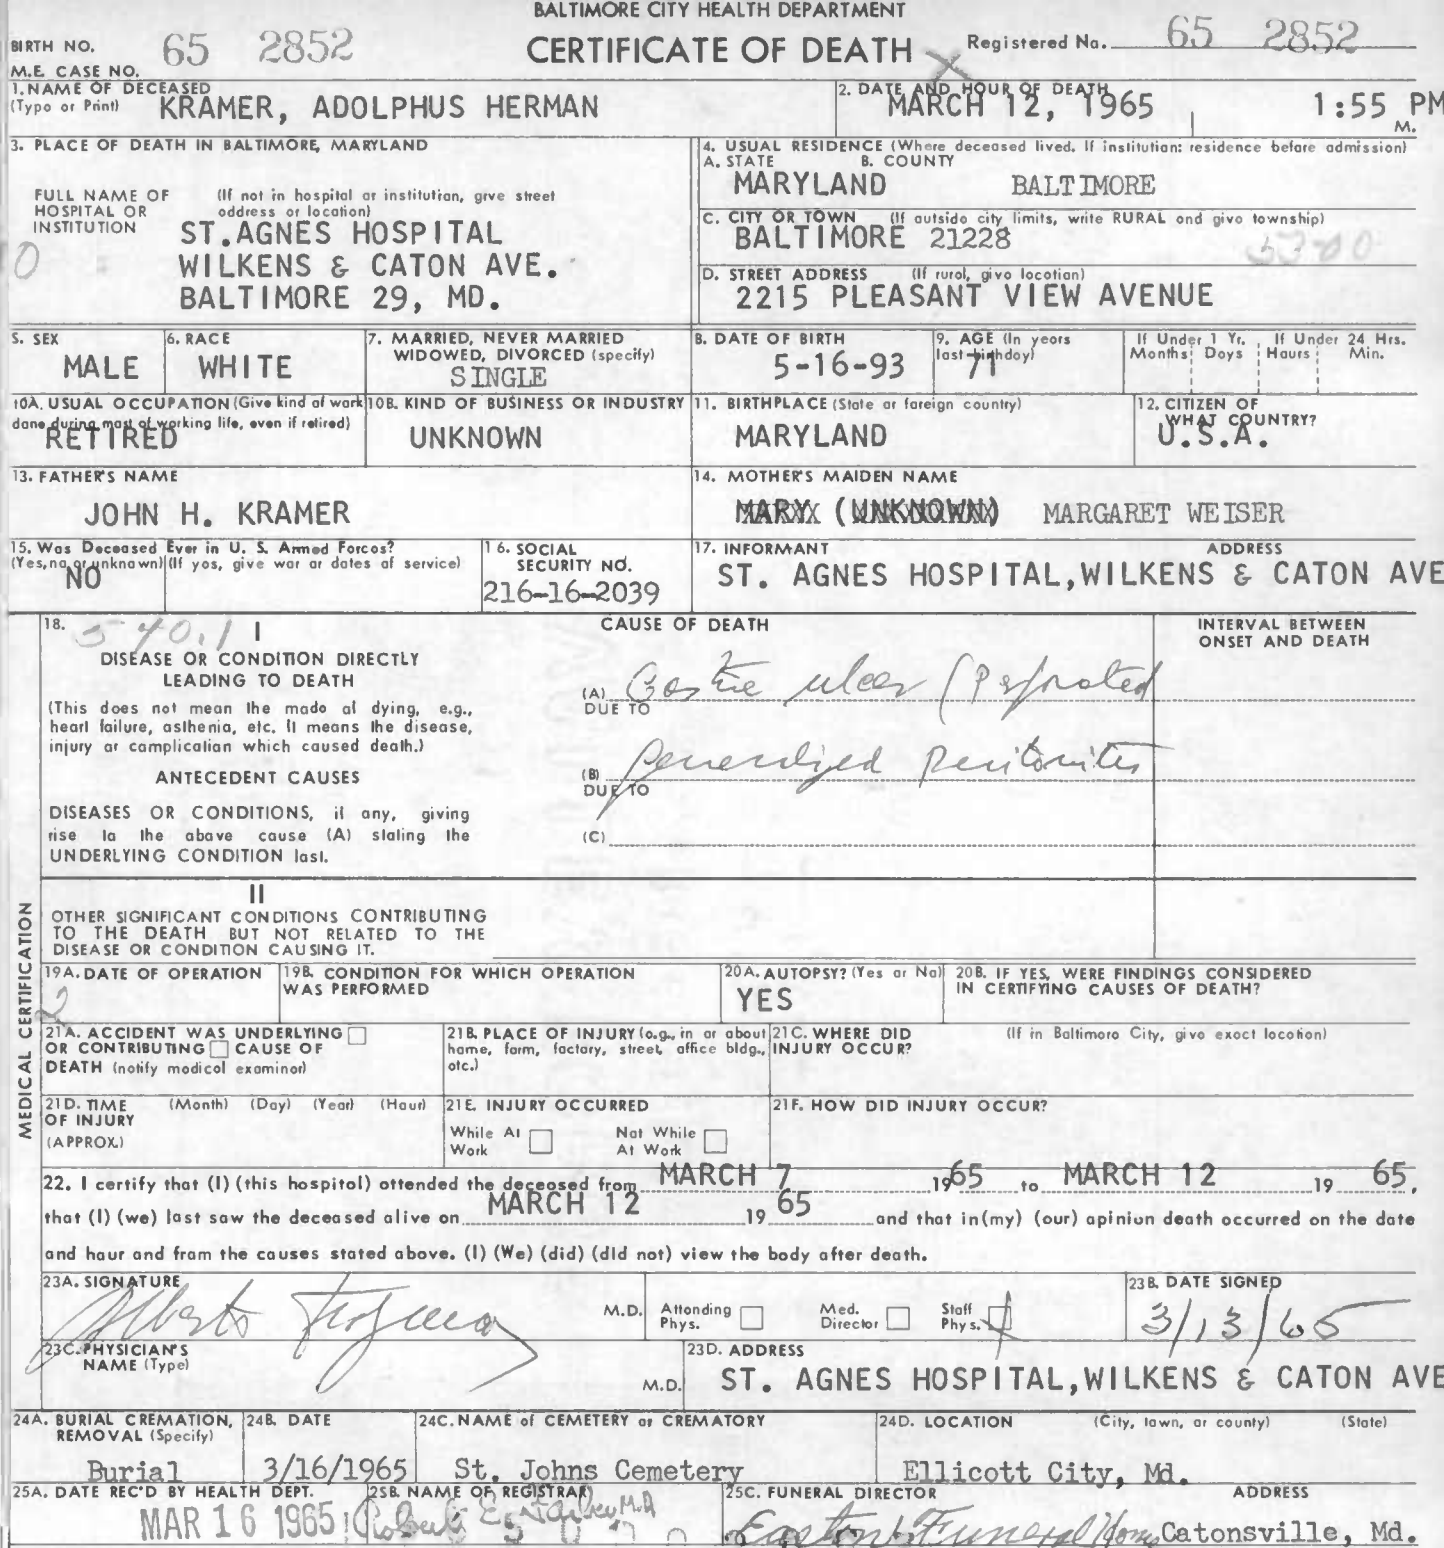 BALTIMORE CITY HEALTH DEPARTMENT
BIRTH NO. 65 2852 CERTIFICATE OF DEATH Registered No. 65 2852
M.E. CASE NO.
1. NAME OF DECEASED
(Type or Print) KRAMER, ADOLPHUS HERMAN
2. DATE AND HOUR OF DEATH
MARCH 12, 1965 1:55 PM
M.
3. PLACE OF DEATH IN BALTIMORE, MARYLAND
FULL NAME OF HOSPITAL OR INSTITUTION
(If not in hospital or institution, give street
address or location)
ST.AGNES HOSPITAL
WILKENS & CATON AVE.
BALTIMORE 29, MD.
0
4. USUAL RESIDENCE (Where deceased lived. If institution: residence before admission)
A. STATE B. COUNTY
MARYLAND BALTIMORE
C. CITY OR TOWN (If outside city limits, write RURAL and give township)
BALTIMORE 21228
5300
D. STREET ADDRESS (If rural, give location)
2215 PLEASANT VIEW AVENUE
5. SEX
MALE
6. RACE
WHITE
7. MARRIED, NEVER MARRIED
WIDOWED, DIVORCED (specify)
SINGLE
8. DATE OF BIRTH
5-16-93
9. AGE (In years
last birthday)
71
If Under 1 Yr. If Under 24 Hrs.
Months Days Hours Min.
10A. USUAL OCCUPATION (Give kind of work
done during most of working life, even if retired)
RETIRED
10B. KIND OF BUSINESS OR INDUSTRY
UNKNOWN
11. BIRTHPLACE (State or foreign country)
MARYLAND
12. CITIZEN OF
WHAT COUNTRY?
U.S.A.
13. FATHER'S NAME
JOHN H. KRAMER
14. MOTHER'S MAIDEN NAME
MARY (UNKNOWN) MARGARET WEISER
15. Was Deceased Ever in U. S. Armed Forces?
(Yes, no or unknown) (If yes, give war or dates of service)
NO
16. SOCIAL
SECURITY NO.
216-16-2039
17. INFORMANT ADDRESS
ST. AGNES HOSPITAL,WILKENS & CATON AVE
MEDICAL CERTIFICATION
18. 540.1 I
DISEASE OR CONDITION DIRECTLY
LEADING TO DEATH
(This does not mean the mode of dying, e.g.,
heart failure, asthenia, etc. It means the disease,
injury or complication which caused death.)
ANTECEDENT CAUSES
DISEASES OR CONDITIONS, if any, giving
rise to the above cause (A) stating the
UNDERLYING CONDITION last.
CAUSE OF DEATH
INTERVAL BETWEEN
ONSET AND DEATH
(A) Gastric ulcer (Perforated
DUE TO
(B) Generalized Peritonitis
DUE TO
(C)
II
OTHER SIGNIFICANT CONDITIONS CONTRIBUTING
TO THE DEATH BUT NOT RELATED TO THE
DISEASE OR CONDITION CAUSING IT.
19A. DATE OF OPERATION
2
19B. CONDITION FOR WHICH OPERATION
WAS PERFORMED
20A. AUTOPSY? (Yes or No)
YES
20B. IF YES, WERE FINDINGS CONSIDERED
IN CERTIFYING CAUSES OF DEATH?
21A. ACCIDENT WAS UNDERLYING
OR CONTRIBUTING CAUSE OF
DEATH (notify medical examiner)
21B. PLACE OF INJURY (e.g., in or about
home, farm, factory, street, office bldg.,
etc.)
21C. WHERE DID (If in Baltimore City, give exact location)
INJURY OCCUR?
21D. TIME (Month) (Day) (Year) (Hour)
OF INJURY
(APPROX.)
21E. INJURY OCCURRED
While At Work Not While At Work
21F. HOW DID INJURY OCCUR?
22. I certify that (I) (this hospital) attended the deceased from MARCH 7 1965 to MARCH 12 19 65,
that (I) (we) last saw the deceased alive on MARCH 12 19 65 and that in (my) (our) opinion death occurred on the date
and hour and from the causes stated above. (I) (We) (did) (did not) view the body after death.
23A. SIGNATURE
Alberto
M.D. Attending Phys. Med. Director Staff Phys.
23B. DATE SIGNED
3/13/65
23C. PHYSICIAN'S
NAME (Type)
M.D.
23D. ADDRESS
ST. AGNES HOSPITAL,WILKENS & CATON AVE
24A. BURIAL CREMATION,
REMOVAL (Specify)
Burial
24B. DATE
3/16/1965
24C. NAME of CEMETERY or CREMATORY
St. Johns Cemetery
24D. LOCATION (City, town, or county) (State)
Ellicott City, Md.
25A. DATE REC'D BY HEALTH DEPT.
MAR 16 1965
25B. NAME OF REGISTRAR
Robert E. Farber M.D.
25C. FUNERAL DIRECTOR ADDRESS
Easton Funeral Home Catonsville, Md.